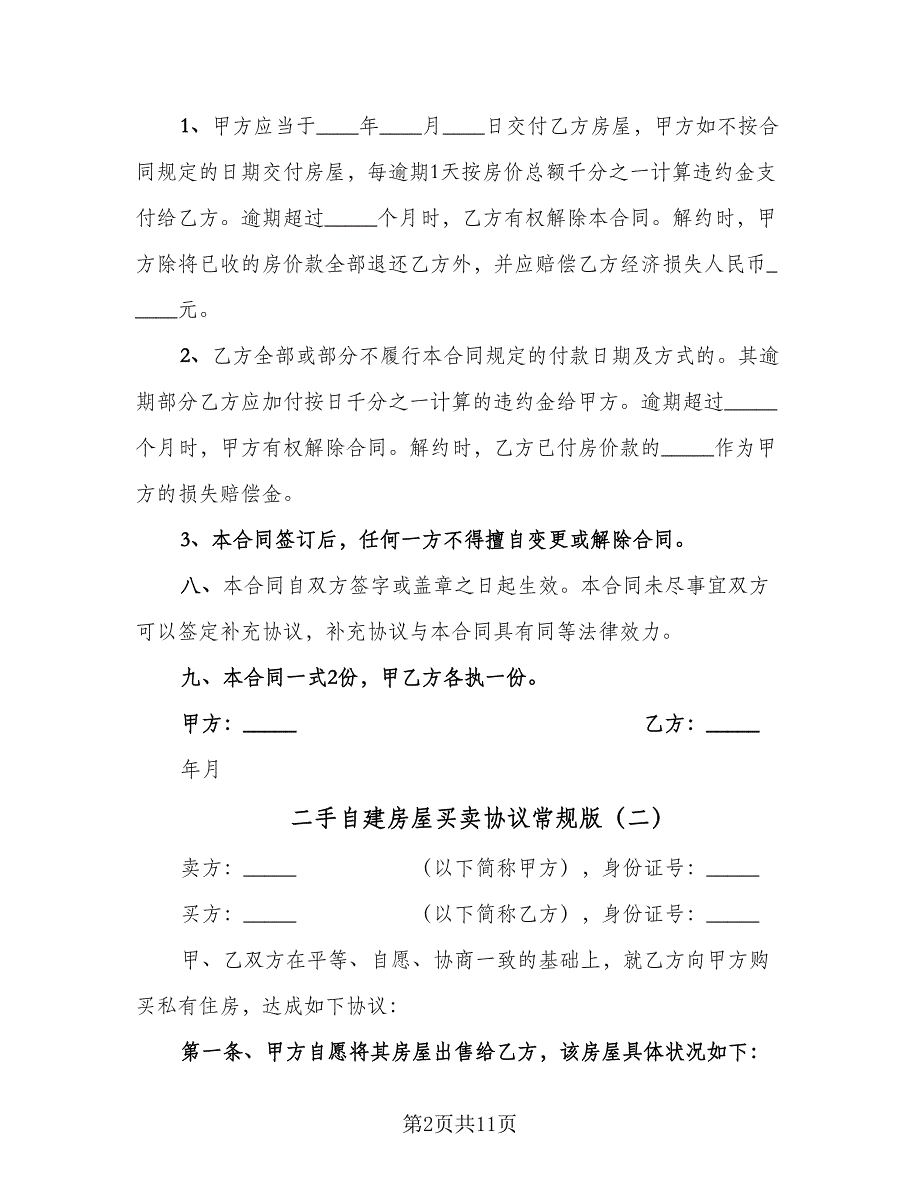 1、甲方应当于____年____月____日交付乙方房屋，甲方如不按合
同规定的日期交付房屋，每逾期1天按房价总额千分之一计算违约金支
付给乙方。逾期超过_____个月时，乙方有权解除本合同。解约时，甲
方除将已收的房价款全部退还乙方外，并应赔偿乙方经济损失人民币_
____元。
2、乙方全部或部分不履行本合同规定的付款日期及方式的。其逾
期部分乙方应加付按日千分之一计算的违约金给甲方。逾期超过_____
个月时，甲方有权解除合同。解约时，乙方已付房价款的_____作为甲
方的损失赔偿金。
3、本合同签订后，任何一方不得擅自变更或解除合同。
八、本合同自双方签字或盖章之日起生效。本合同未尽事宜双方
可以签定补充协议，补充协议与本合同具有同等法律效力。
九、本合同一式2份，甲乙方各执一份。
甲方：_____ 乙方：_____
年月
二手自建房屋买卖协议常规版（二）
卖方：_____ （以下简称甲方），身份证号：_____
买方：_____ （以下简称乙方），身份证号：_____
甲、乙双方在平等、自愿、协商一致的基础上，就乙方向甲方购
买私有住房，达成如下协议：
第一条、甲方自愿将其房屋出售给乙方，该房屋具体状况如下：
第2页共11页